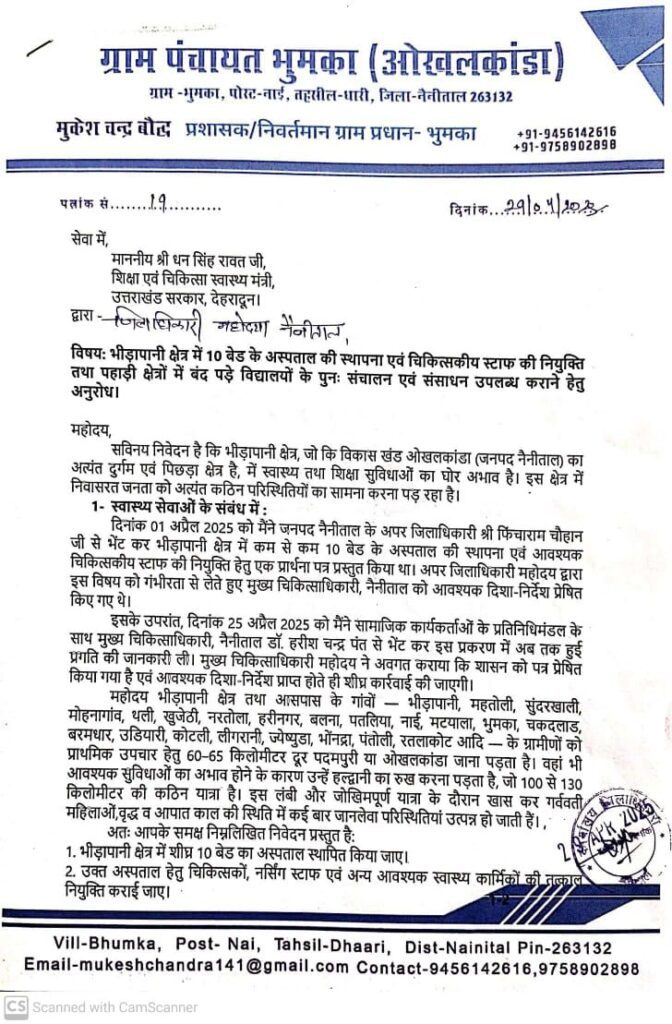 ग्राम पंचायत भुमका (ओखलकांडा)
ग्राम -भुमका, पोस्ट-नाई, तहसील-धारी, जिला-नैनीताल 263132
मुकेश चन्द्र बौद्ध प्रशासक/निवर्तमान ग्राम प्रधान- भुमका
+91-9456142616
+91-9758902898
पत्रांक सं......19...........
दिनांक...
सेवा में,
माननीय श्री धन सिंह रावत जी,
शिक्षा एवं चिकित्सा स्वास्थ्य मंत्री,
उत्तराखंड सरकार, देहरादून।
द्वारा - जिलाधिकारी महोदया नैनीताल,
विषय: भीड़ापानी क्षेत्र में 10 बेड के अस्पताल की स्थापना एवं चिकित्सकीय स्टाफ की नियुक्ति
तथा पहाड़ी क्षेत्रों में बंद पड़े विद्यालयों के पुनः संचालन एवं संसाधन उपलब्ध कराने हेतु
अनुरोध।
महोदय,
सविनय निवेदन है कि भीड़ापानी क्षेत्र, जो कि विकास खंड ओखलकांडा (जनपद नैनीताल) का
अत्यंत दुर्गम एवं पिछड़ा क्षेत्र है, में स्वास्थ्य तथा शिक्षा सुविधाओं का घोर अभाव है। इस क्षेत्र में
निवासरत जनता को अत्यंत कठिन परिस्थितियों का सामना करना पड़ रहा है।
1- स्वास्थ्य सेवाओं के संबंध में :
दिनांक 01 अप्रैल 2025 को मैंने जनपद नैनीताल के अपर जिलाधिकारी श्री फिंचाराम चौहान
जी से भेंट कर भीड़ापानी क्षेत्र में कम से कम 10 बेड के अस्पताल की स्थापना एवं आवश्यक
चिकित्सकीय स्टाफ की नियुक्ति हेतु एक प्रार्थना पत्र प्रस्तुत किया था। अपर जिलाधिकारी महोदय द्वारा
इस विषय को गंभीरता से लेते हुए मुख्य चिकित्साधिकारी, नैनीताल को आवश्यक दिशा-निर्देश प्रेषित
किए गए थे।
इसके उपरांत, दिनांक 25 अप्रैल 2025 को मैंने सामाजिक कार्यकर्ताओं के प्रतिनिधिमंडल के
साथ मुख्य चिकित्साधिकारी, नैनीताल डॉ. हरीश चन्द्र पंत से भेंट कर इस प्रकरण में अब तक हुई
प्रगति की जानकारी ली। मुख्य चिकित्साधिकारी महोदय ने अवगत कराया कि शासन को पत्र प्रेषित
किया गया है एवं आवश्यक दिशा-निर्देश प्राप्त होते ही शीघ्र कार्रवाई की जाएगी।
महोदय भीड़ापानी क्षेत्र तथा आसपास के गांवों — भीड़ापानी, महतोली, सुंदरखाली,
मोहनागांव, थली, खुजेठी, नरतोला, हरीनगर, बलना, पतलिया, नाई, मटयाला, भुमका, चकदलाड,
बरमधार, उडियारी, कोटली, लीगरानी, ज्येष्युडा, भोंनद्रा, पंतोली, रतलाकोट आदि — के ग्रामीणों को
प्राथमिक उपचार हेतु 60–65 किलोमीटर दूर पदमपुरी या ओखलकांडा जाना पड़ता है। वहां भी
आवश्यक सुविधाओं का अभाव होने के कारण उन्हें हल्द्वानी का रुख करना पड़ता है, जो 100 से 130
किलोमीटर की कठिन यात्रा है। इस लंबी और जोखिमपूर्ण यात्रा के दौरान खास कर गर्ववती
महिलाओं,वृद्ध व आपात काल की स्थिति में कई बार जानलेवा परिस्थितियां उत्पन्न हो जाती हैं।
अतः आपके समक्ष निम्नलिखित निवेदन प्रस्तुत है:
1. भीड़ापानी क्षेत्र में शीघ्र 10 बेड का अस्पताल स्थापित किया जाए।
2. उक्त अस्पताल हेतु चिकित्सकों, नर्सिंग स्टाफ एवं अन्य आवश्यक स्वास्थ्य कार्मिकों की तत्काल
नियुक्ति कराई जाए।
APR 2025
1-2
Vill-Bhumka, Post- Nai, Tahsil-Dhaari, Dist-Nainital Pin-263132
Email-mukeshchandra141@gmail.com Contact-9456142616,9758902898
CS Scanned with CamScanner